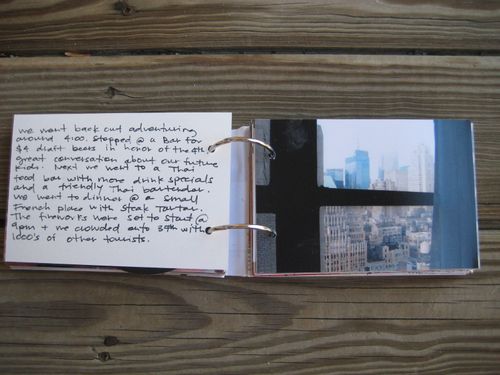 we went back out adventuring
around 4:00. stopped @ a Bar for
$4 draft beers in honor of the 4th.
great conversation about our future
kids. Next we went to a Thai
food bar with more drink specials
and a friendly Thai bartender.
we went to dinner @ a small
French place with steak Tartar.
The fireworks were set to start @
9pm + we crowded onto 39th with
1000's of other tourists.